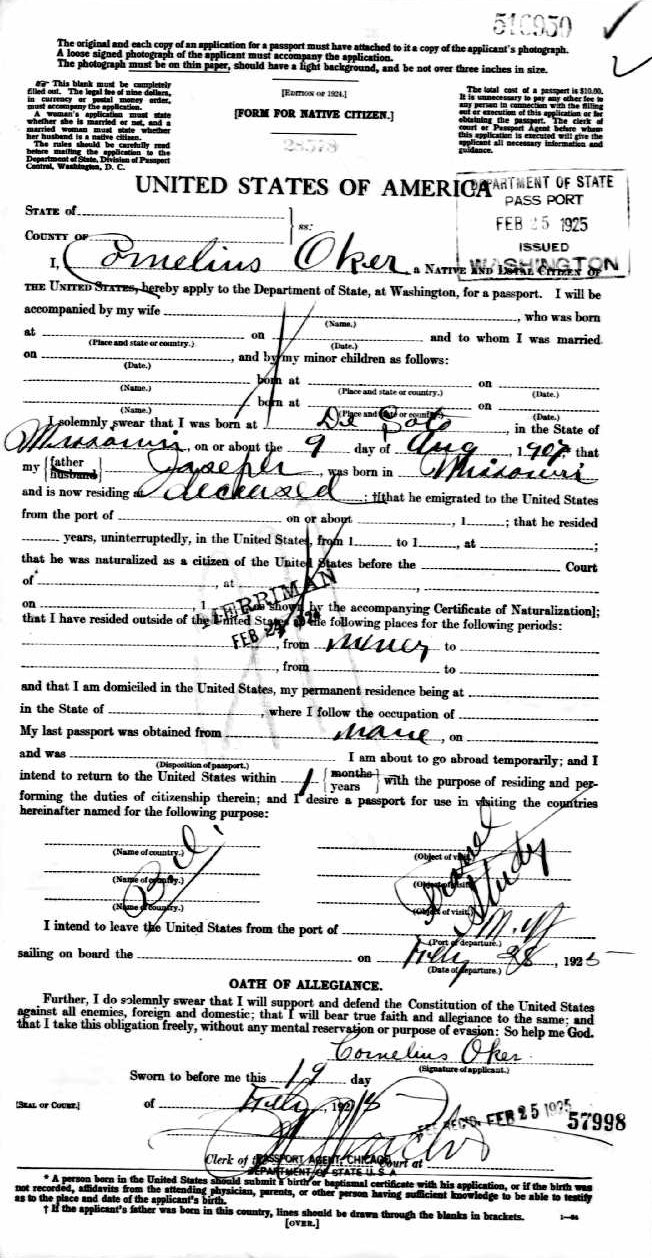 510950
The original and each copy of an application for a passport must have attached to it a copy of the applicant's photograph.
A loose signed photograph of the applicant must accompany the application.
The photograph must be on thin paper, should have a light background, and be not over three inches in size.
☞ This blank must be completely
filled out. The legal fee of nine dollars,
in currency or postal money order,
must accompany the application.
A woman's application must state
whether she is married or not, and a
married woman must state whether
her husband is a native citizen.
The rules should be carefully read
before mailing the application to the
Department of State, Division of Passport
Control, Washington, D. C.
[EDITION OF 1924.]
[FORM FOR NATIVE CITIZEN.]
28578
The total cost of a passport is $10.00.
It is unnecessary to pay any other fee to
any person in connection with the filling
out or execution of this application or for
obtaining the passport. The clerk of
court or Passport Agent before whom
this application is executed will give the
applicant all necessary information and
guidance.
UNITED STATES OF AMERICA
DEPARTMENT OF STATE
PASS PORT
FEB 25 1925
ISSUED
WASHINGTON
STATE OF
COUNTY OF
ss:
I, Cornelius Oker, a NATIVE AND LOYAL CITIZEN OF
THE UNITED STATES, hereby apply to the Department of State, at Washington, for a passport. I will be
accompanied by my wife , who was born
(Name.)
at on and to whom I was married
(Place and state or country.) (Date.)
on , and by my minor children as follows:
(Date.)
born at on
(Name.) (Place and state or country.) (Date.)
born at on
(Name.) (Place and state or country.) (Date.)
I solemnly swear that I was born at De Soto, in the State of
Missouri, on or about the 9 day of Aug, 1907, that
my {father husband} Joseph, was born in Missouri
and is now residing at deceased; †[that he emigrated to the United States
from the port of on or about , 1 ; that he resided
years, uninterruptedly, in the United States, from 1 to 1 , at ;
that he was naturalized as a citizen of the United States before the Court
of , at ,
on , 1 , as shown by the accompanying Certificate of Naturalization];
MERRIMAN
FEB 24
that I have resided outside of the United States at the following places for the following periods:
, from never to
, from to
and that I am domiciled in the United States, my permanent residence being at
in the State of , where I follow the occupation of
My last passport was obtained from none, on
and was I am about to go abroad temporarily; and I
(Disposition of passport.)
intend to return to the United States within 1 {months years} with the purpose of residing and per-
forming the duties of citizenship therein; and I desire a passport for use in visiting the countries
hereinafter named for the following purpose:
(Name of country.) (Object of visit.)
(Name of country.) (Object of visit.)
(Name of country.) (Object of visit.)
Travel
Study
I intend to leave the United States from the port of N. Y.
(Port of departure.)
sailing on board the on Feby 28, 1925
(Date of departure.)
OATH OF ALLEGIANCE.
Further, I do solemnly swear that I will support and defend the Constitution of the United States
against all enemies, foreign and domestic; that I will bear true faith and allegiance to the same; and
that I take this obligation freely, without any mental reservation or purpose of evasion: So help me God.
Cornelius Oker
(Signature of applicant.)
Sworn to before me this 19 day
[SEAL OF COURT.] of Feby, 1925
FEE REC'D. FEB 25 1925
57998
Clerk of the Court at
PASSPORT AGENT, CHICAGO
DEPARTMENT OF STATE U. S. A.
* A person born in the United States should submit a birth or baptismal certificate with his application, or if the birth was
not recorded, affidavits from the attending physician, parents, or other person having sufficient knowledge to be able to testify
as to the place and date of the applicant's birth.
† If the applicant's father was born in this country, lines should be drawn through the blanks in brackets.
[OVER.]